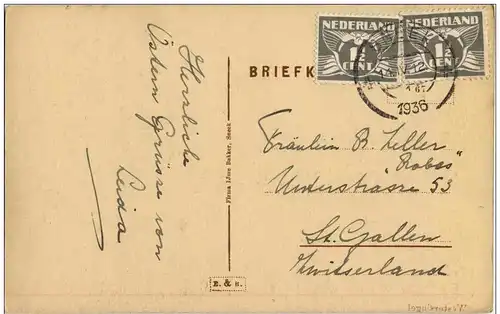 Herzliche
Ostern Grüsse von
Leida
BRIEFK
Firma IJsse Bakker, Sneek
B. & S.
NEDERLAND
1½
CENT
NEDERLAND
1½
CENT
1936
Fräulein B. Zeller
"Robas"
Unterstrasse 53
St. Gallen
Zwitserland